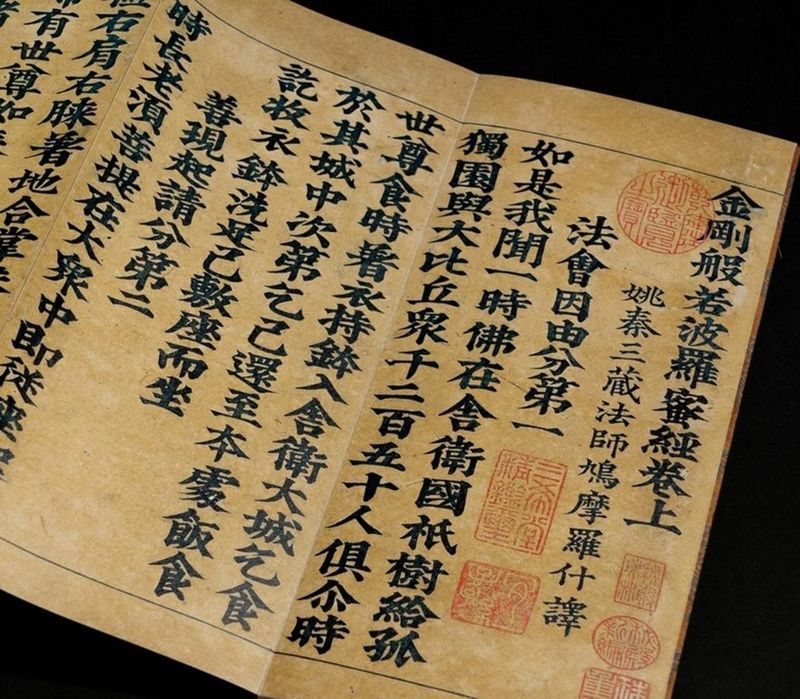 金剛般若波羅蜜經卷上
乾隆御覽之寶
姚秦三藏法師鳩摩羅什譯
法會因由分第一
三希堂精鑑璽
宜子孫
如是我聞一時佛在舍衛國祇樹給孤
獨園與大比丘眾千二百五十人俱尒時
世尊食時著衣持鉢入舍衛大城乞食
於其城中次第乞已還至本處飯食
訖收衣鉢洗足已敷座而坐
善現起請分第二
時長老須菩提在大眾中即從座起
右肩右膝著地合掌
有世尊如